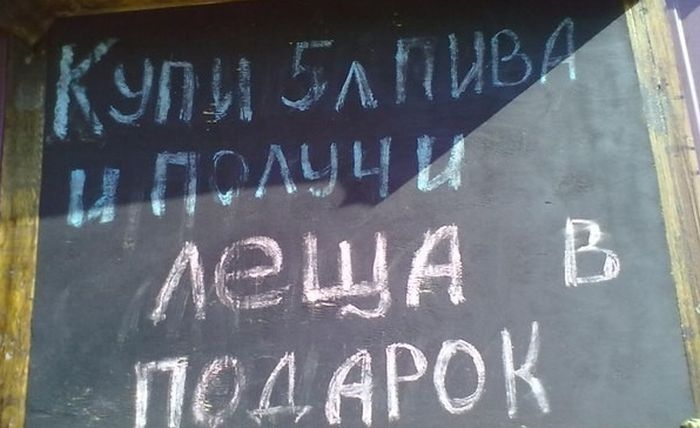 Купи 5л пива
и получи
леща в
подарок